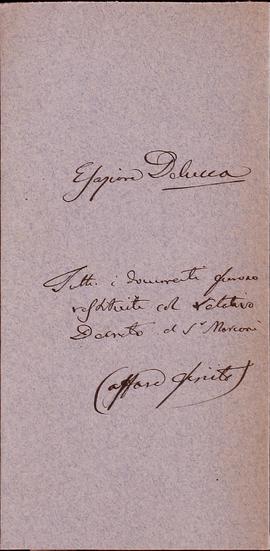 Espione Delucca
Tutti i documenti furono
restituiti col relativo
Decreto al Sr Marconi
(affare finito)